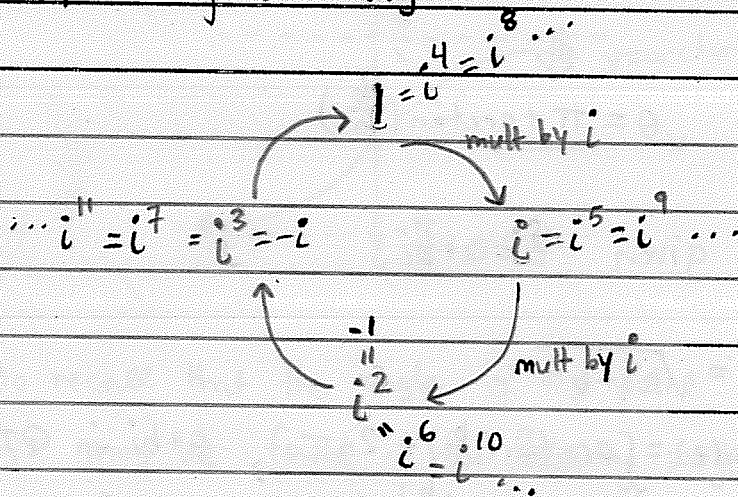 1 = i⁴ = i⁸ ...
mult by i
... i¹¹ = i⁷ = i³ = -i
i = i⁵ = i⁹ ...
-1
"
i²
mult by i
" i⁶ = i¹⁰ ...